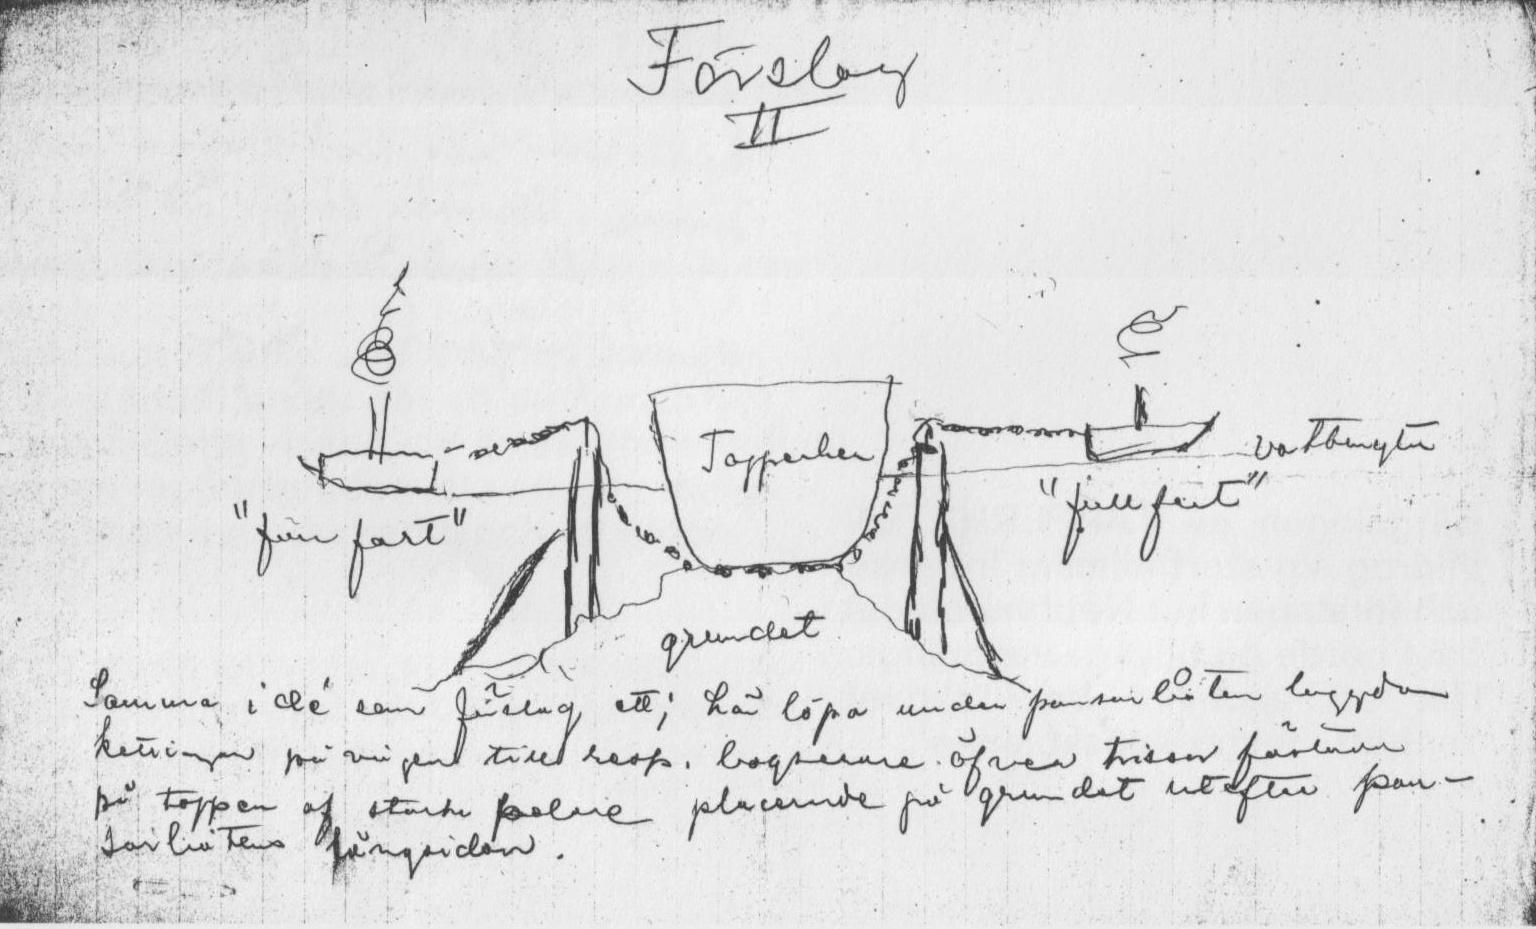 Förslag
II
Tapperheten
vattenytan
"full fart"
"full fart"
grundet
Samma idé som förslag ett; här löpa under pansarbåten laggda
kettingar på vägen till resp. bogserare öfver trissor fästade
på toppen af starka pålar placerade på grundet utefter pan-
sarbåtens långsidor.